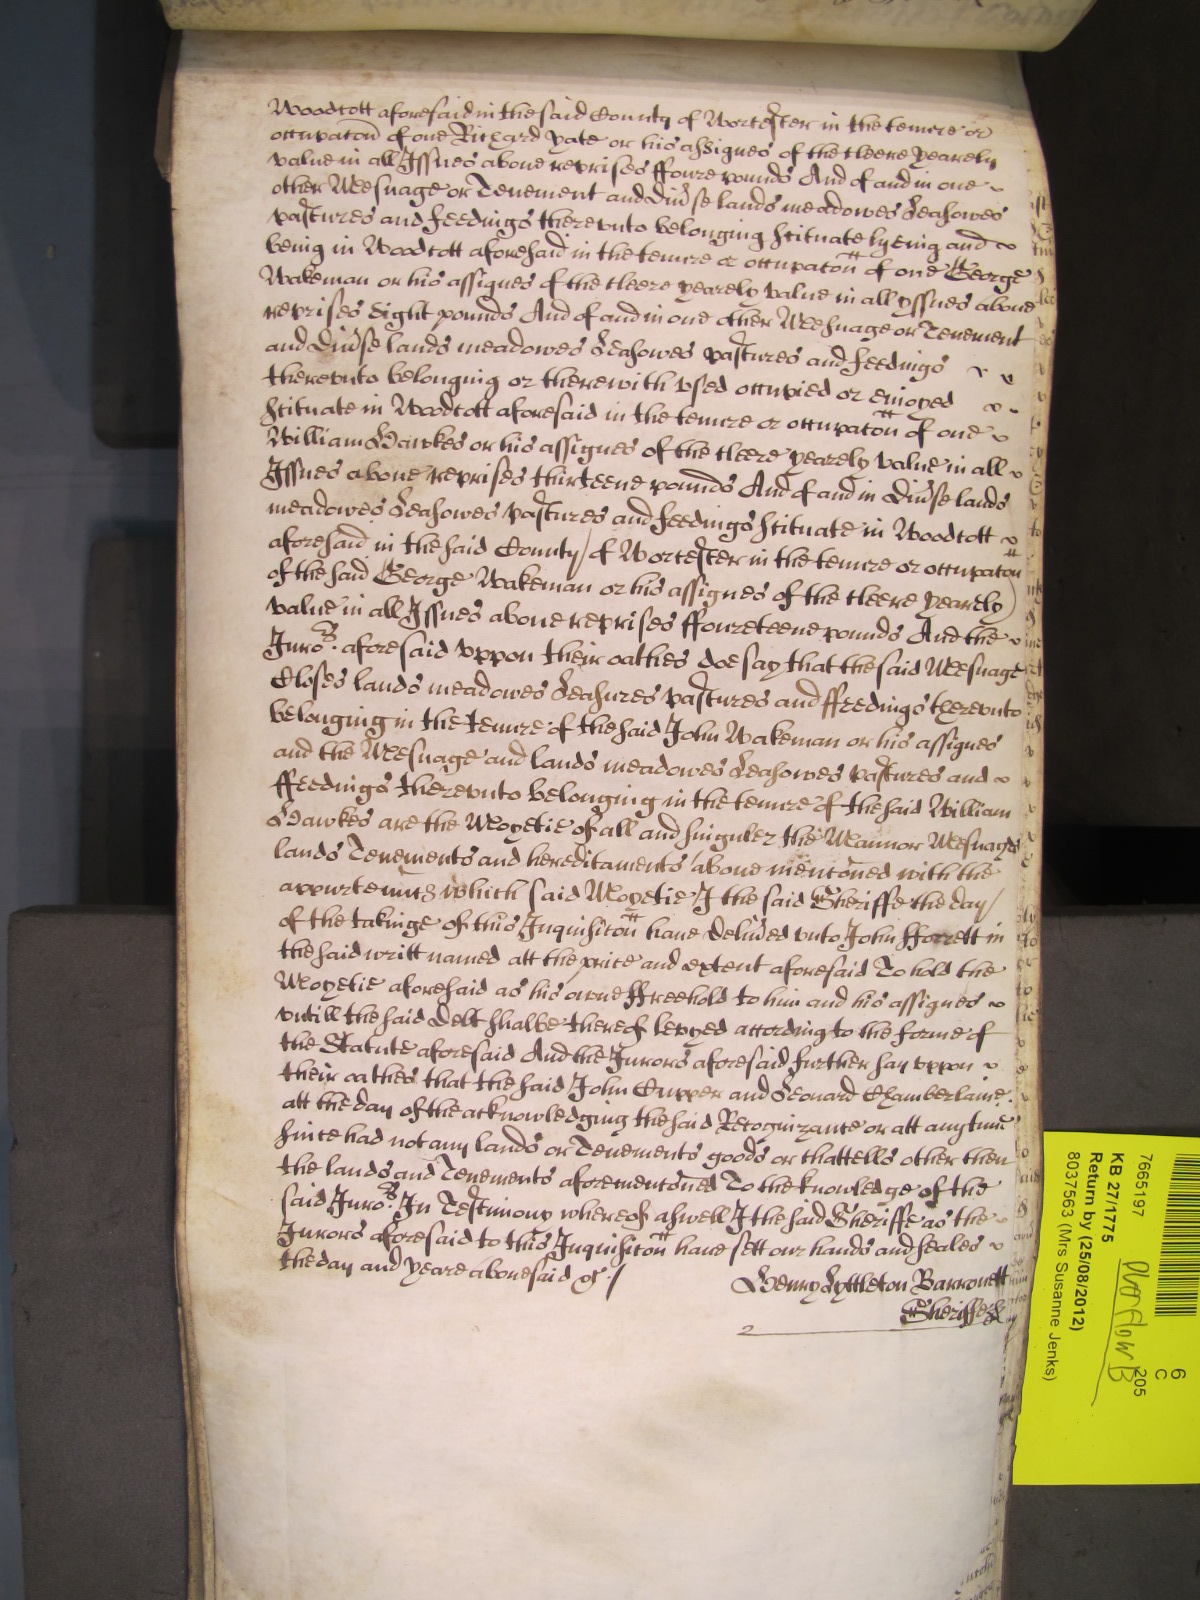 Woodcott aforesaid in the said County of Worcester in the tenure or
occupacon of one Richard yate or his assignes of the cleere yearely
value in all Issues aboue reprises ffoure pounds And of and in one
other Messuage or Tenement and diu'se lands meadowes Leasowes
pastures and feedings therevnto belonging scituate lyeing and
being in Woodcott aforesaid in the tenure or occupaton of one George
Wakeman or his assignes of the cleere yearely value in all yssues aboue
reprises eight pounds And of and in one other Messuage or Tenement
and diu'se lands meadowes Leasowes pastures and feedings
therevnto belonging or therewith vsed occupied or enioyed
scituate in Woodcott aforesaid in the tenure or occupaton of one
William Hawkes or his assignes of the cleere yearely value in all
Issues aboue reprises thirteene pounds And of and in diu'se lands
meadowes Leasowes pastures and feedings scituate in Woodcott
aforesaid in the said County of Worcester in the tenure or occupaton
of the said George Wakeman or his assignes of the cleere yearely
value in all Issues aboue reprises ffoureteene pounds And the
Juro.rs aforesaid vppon their oathes doe say that the said Messuage
Closes lands meadowes Leasures pastures and ffeedings therevnto
belonging in the tenure of the said John Wakeman or his assignes
and the Messuage and lands meadowes Leasowes pastures and
ffeedings therevnto belonging in the tenure of the said William
Hawkes are the Moyetie of all and singuler the Mannor Messuages
lands Tenements and hereditaments aboue mentoned with the
appurtennts which said Moyetie I the said Sheriffe the day
of the takinge of this Inquisiton haue deliu'ed vnto John fforrett in
the said writt named att the price and extent aforesaid To hold the
Moyetie aforesaid as his owne ffreehold to him and his assignes
vntill the said debt shalbe thereof levyed according to the forme of
the Statute aforesaid And the Jurors aforesaid further say vppon
their oathes that the said John Cupper and Leonard Chamberlaine
att the day of the acknowledging the said Recognizance or att any time
since had not any lands or Tenements goods or chattells other then
the lands and Tenements aforementoned To the knowledge of the
said Juro.rs In Testimony whereof aswell I the said Sheriffe as the
Jurors aforesaid to this Inquisiton haue sett our hands and seales
the day and yeare abouesaid &c
Henry Lyttleton Barronett
Sheriffe
7665197
KB 27/1775
Return by (25/08/2012)
8037563 (Mrs Susanne Jenks)
Overflow B
205
6
C